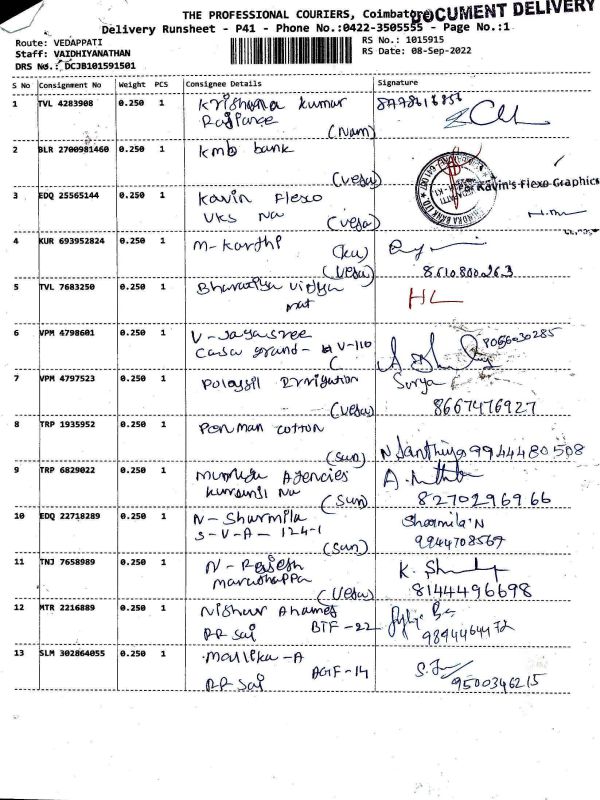 DOCUMENT DELIVERY
THE PROFESSIONAL COURIERS, Coimbatore
Delivery Runsheet - P41 - Phone No.:0422-3505555 - Page No.:1
Route: VEDAPPATI RS No.: 1015915
Staff: VAIDHIYANATHAN RS Date: 08-Sep-2022
DRS No.: DCJB101591501
S No Consignment No Weight PCS Consignee Details Signature
1 TVL 4283908 0.250 1 Krishana Kumar
(Nam)
2 BLR 2700981460 0.250 1 kmb bank
(vesa)
3 EDQ 25565144 0.250 1 Kavin Flexo For Kavin's Flexo Graphics
VKS Na (vesa)
4 KUR 693952824 0.250 1 M-Karthi (ku)
(Vesa) 8610800263
5 TVL 7683250 0.250 1 Bharathiya Vidya HL
6 VPM 4798601 0.250 1 V-Jayasree 8066030285
Casa grand- V-110
7 VPM 4797523 0.250 1 Surya
(vesa) 8667476927
8 TRP 1935952 0.250 1 Penman cotton
(sun) N Santhiya 9944480508
9 TRP 6829022 0.250 1 Muruga Agencies
(Sun) 8270296966
10 EDQ 22718289 0.250 1 N-Sharmila Sharmila N
S-V-A-124-1 (sun) 9944708569
11 TNJ 7658989 0.250 1 N-Rajesh
(Vesa) 8144496698
12 MTR 2216889 0.250 1 Nishar Ahamed
RR Sai BTF-22 9894464172
13 SLM 302864055 0.250 1 Moulika-A
RR Sai AGTF-14 9500346215